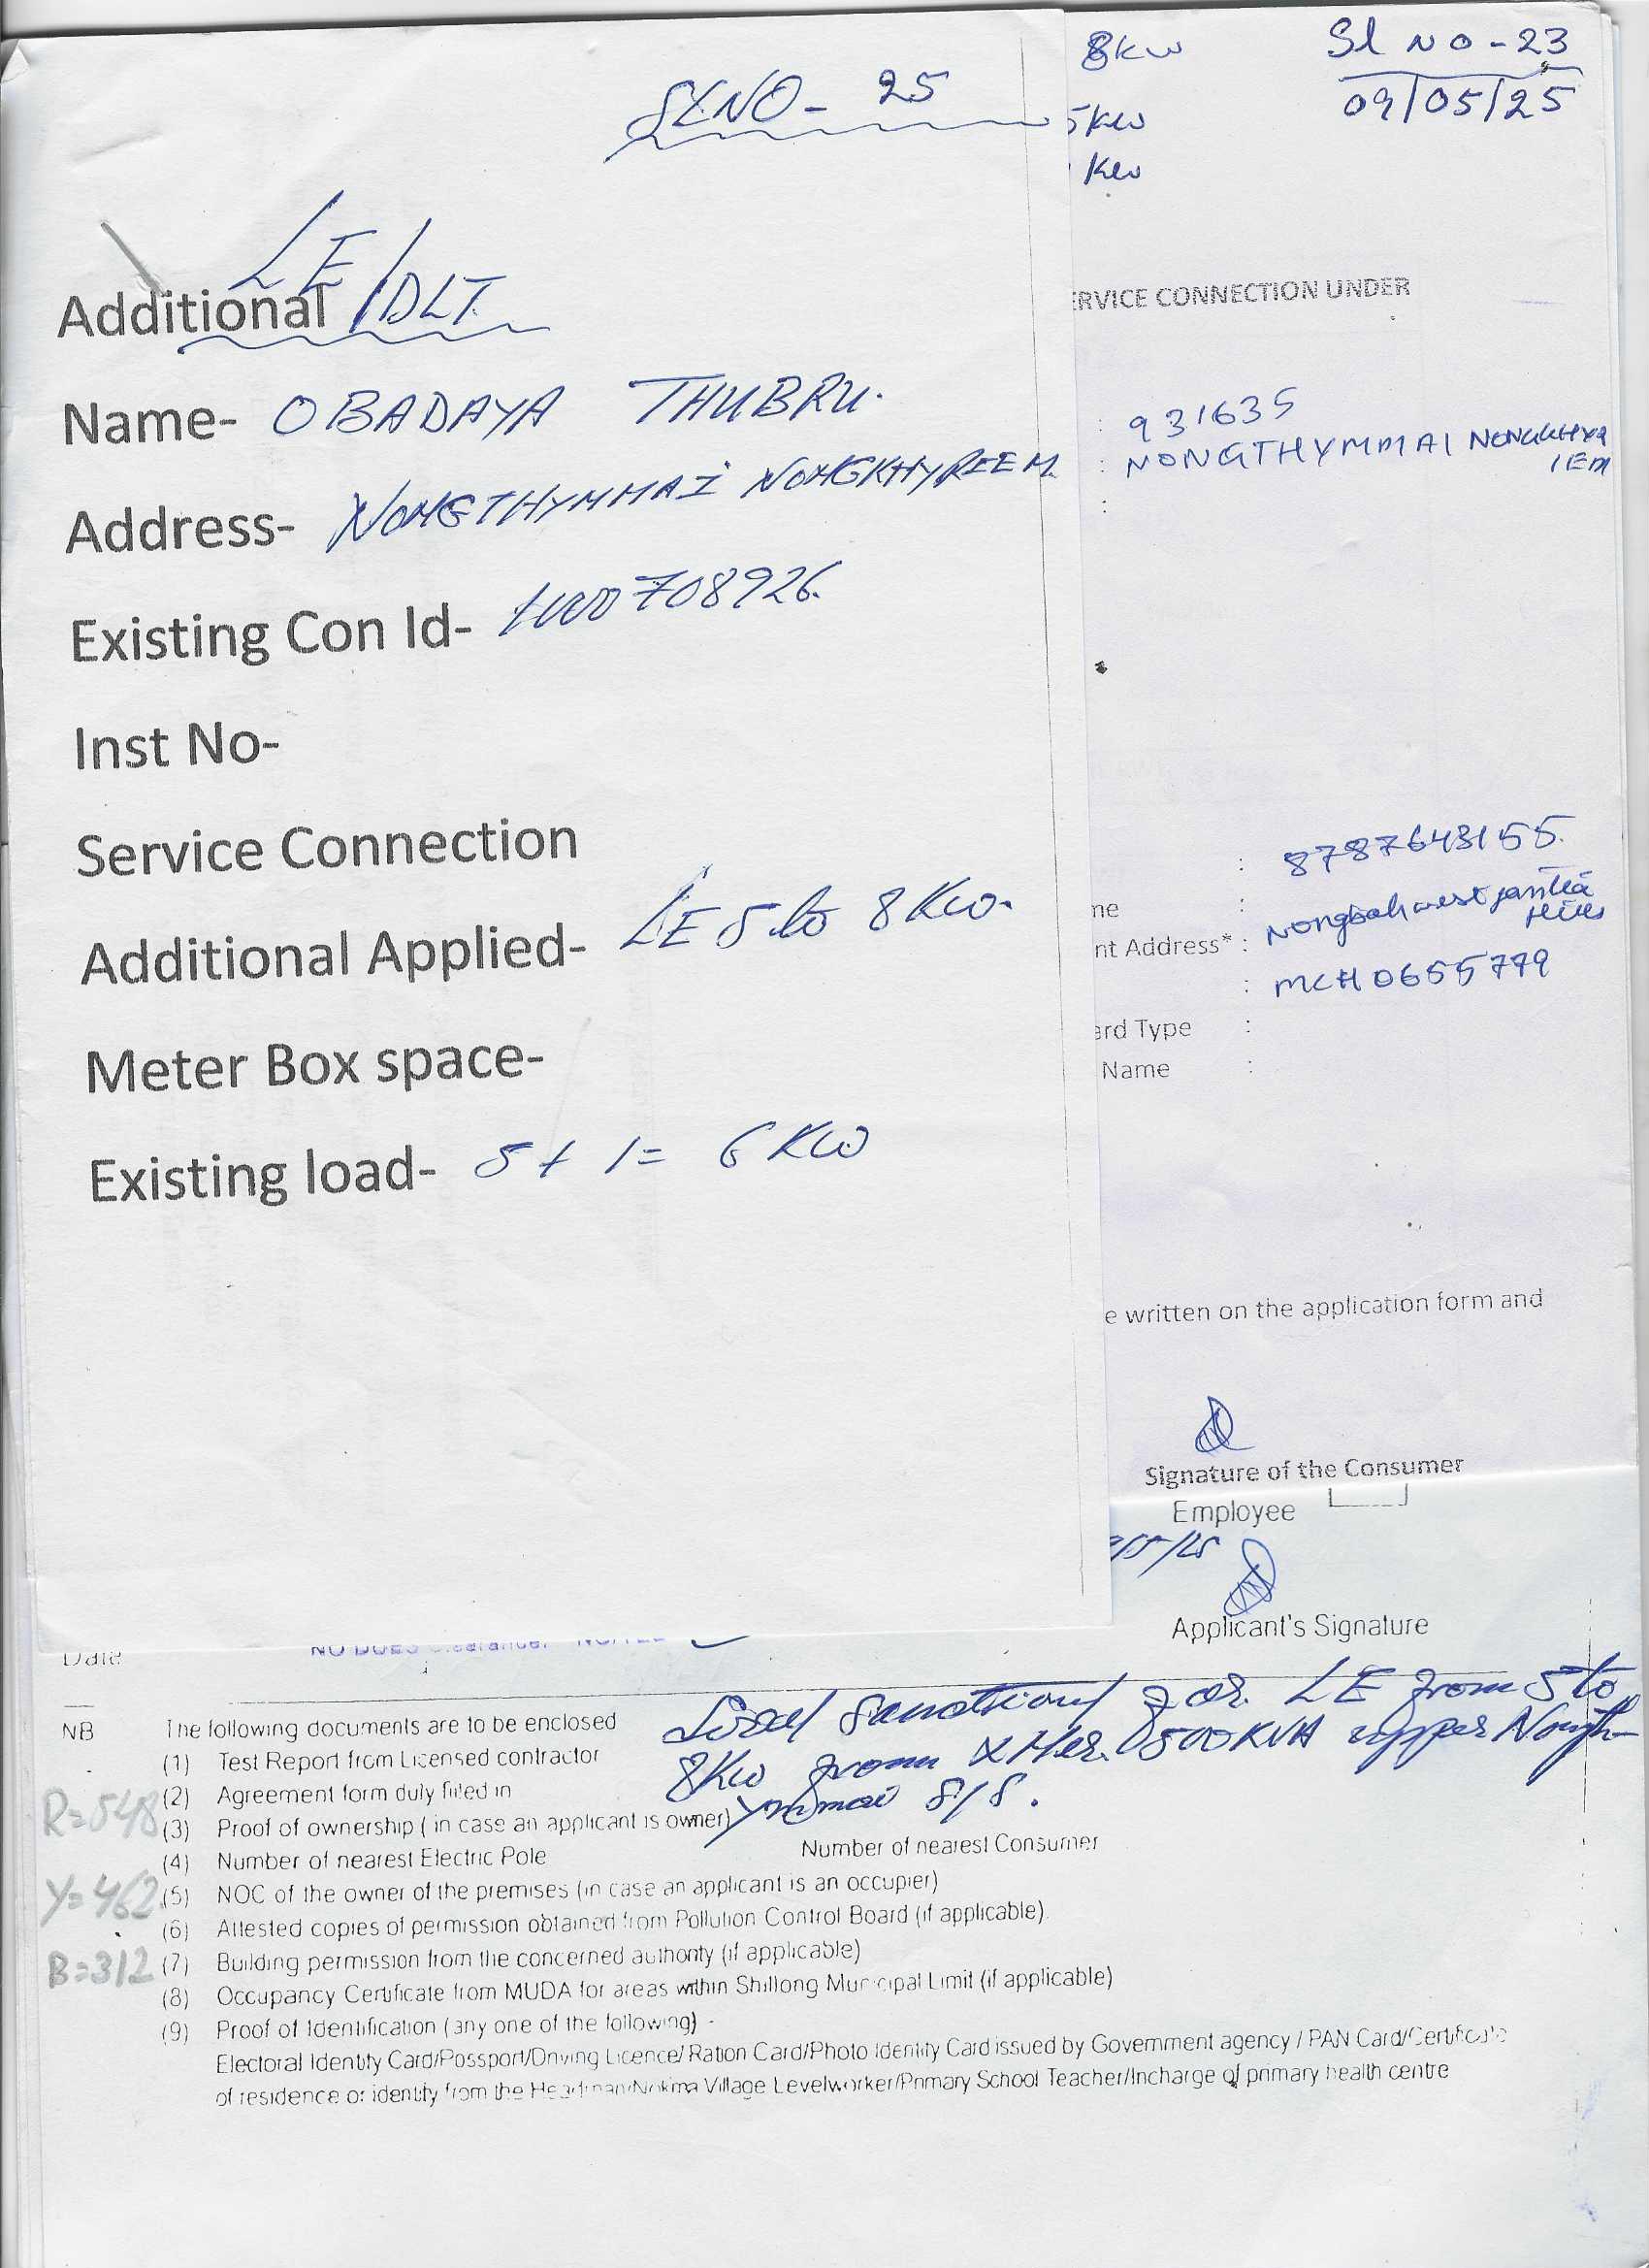 SLNO- 25
LE/DLT.
Additional
Name- OBADAYA THUBRU.
Address- NONGTHYMMAI NONGKHYRIEM
Existing Con Id- 1000708926.
Inst No-
Service Connection
Additional Applied- LE 5 to 8 KW.
Meter Box space-
Existing load- 5 + 1 = 6 KW
8KW
Sl NO-23
09/05/25
5KW
KW
ERVICE CONNECTION UNDER
: 931635
: NONGTHYMMAI NONGKHYR
IEM
:
: 8787643155.
ne :
nt Address* : Nongbah west jantia
Hills
: MCH0655779
ard Type :
Name :
e written on the application form and
Signature of the Consumer
Employee
/5/25
Applicant's Signature
Date
NO DUES Clearance.
NB The following documents are to be enclosed
Load Sanctioned for LE from 5 to
8KW from X Mer. 500KVA upper Nongth-
ymmai S/S.
(1) Test Report from Licensed contractor
(2) Agreement form duly filled in
(3) Proof of ownership ( in case an applicant is owner)
(4) Number of nearest Electric Pole Number of nearest Consumer
(5) NOC of the owner of the premises (in case an applicant is an occupier)
(6) Attested copies of permission obtained from Pollution Control Board (if applicable).
(7) Building permission from the concerned authority (if applicable)
(8) Occupancy Certificate from MUDA for areas within Shillong Municipal Limit (if applicable)
(9) Proof of Identification (any one of the following) -
Electoral Identity Card/Possport/Driving Licence/ Ration Card/Photo Identity Card issued by Government agency / PAN Card/Certificate
of residence or identify from the Headman/Nokma Village Levelworker/Primary School Teacher/Incharge of primary health centre
R=548
Y=462
B=312